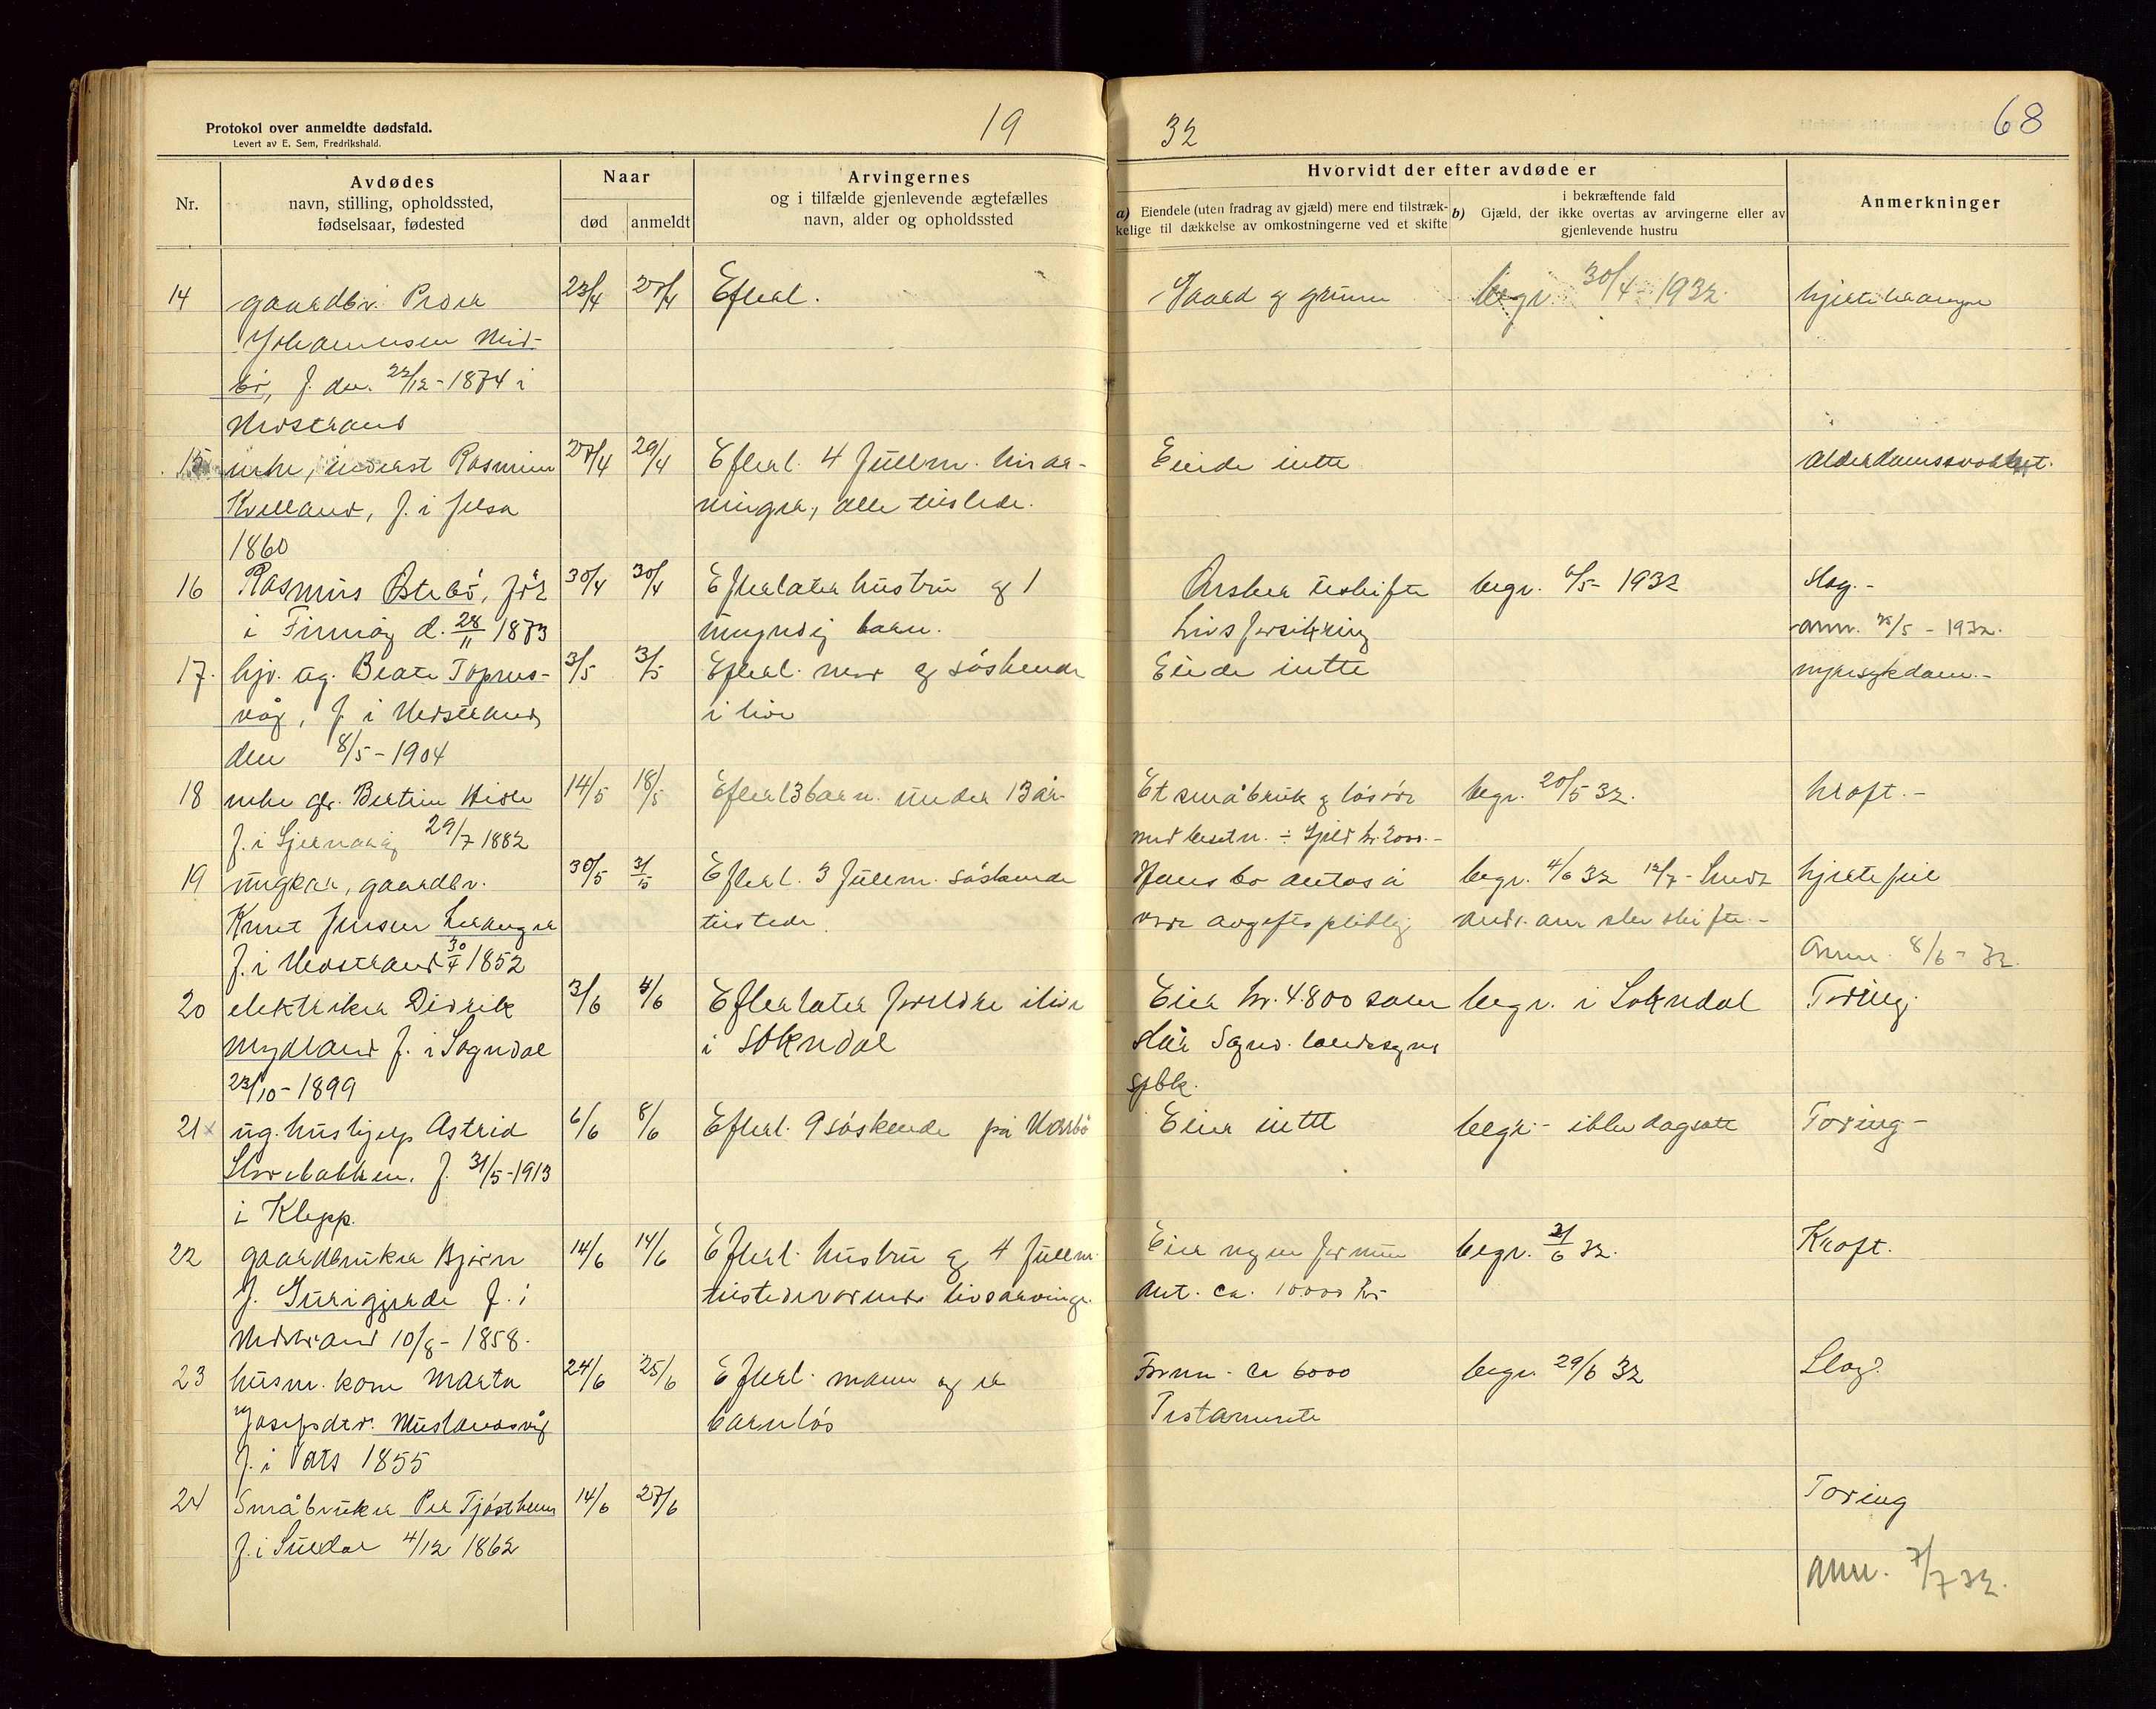 Protokol over anmeldte dødsfald.
Levert av E. Sem, Fredrikshald.
19 32
68
Nr.
Avdødes
navn, stilling, opholdssted,
fødselsaar, fødested
Naar
død
anmeldt
Arvingernes
og i tilfælde gjenlevende ægtefælles
navn, alder og opholdssted
Hvorvidt der efter avdøde er
a) Eiendele (uten fradrag av gjæld) mere end tilstræk-
kelige til dækkelse av omkostningerne ved et skifte
i bekræftende fald
b) Gjæld, der ikke overtas av arvingerne eller av
gjenlevende hustru
Anmerkninger
14 gaardbr. Peder 23/4 27/4 Efterl. Gaard og begr. 30/4 - 1932
Johannesen Med-
bø, f. den 22/12 - 1874 i
Nedstrand
15 enke, inderst Rasmine 27/4 29/4 Efterl. 4 fullm. livar- Eiede intet alderdomssvakhet.
Kvelland, f. i Jelsa vinger, alle tilstede.
1860
16 Rasmus Østebø, født 30/4 30/4 Efterlater hustru og 1 Ønsker begr. 6/5 - 1932 Slag.-
i Finnøy d. 28/11 1873 myndig barn. Livsforsikring ann. 25/5 - 1932.
17. hjv. ug. Beate Topnes- 3/5 3/5 Efterl. mor og søskende Eiede intet nyresykdom.-
våg, f. i Nedstrand i live
den 8/5 - 1904
18 enke Bertine 14/5 18/5 Efterl 3 barn. under 18 år Et småbruk og løsøre begr. 20/5 32. kræft.-
f. i Sjernarøy 29/7 1882 med besetn. ÷ Gjeld kr. 2000.-
19 ungkar, gaardbr. 30/5 31/5 Efterl. 3 fullm. søskende Hans bo antas å begr. 4/6 32 hjertefeil
Knut Jensen Leranger tilstede. være avgiftspliktig
f. i Nedstrand 30/4 1852 Ann. 8/6 - 32.
20 elektriker Didrik 3/6 4/6 Efterlater foreldre i live Eier kr. 4.800 som begr. i Sokndal Tæring.
Mydland f. i Sogndal i Sokndal står Sognd. landsogns
23/10 - 1899 spbk.
21 ug. hushjelp Astrid 6/6 8/6 Efterl. 9 søskende på Eier intet begr.- ikke dagsatt Tæring-
Storebakken. f. 31/5 - 1913
i Klepp.
22 gaardbruker Bjørn 14/6 14/6 Efterl. hustru og 4 fullm. Eier noen formue begr. 21/6 32. Kræft.
J. Gurigjerde f. i tilstedeværende livsarvinger. Ant. ca. 10000 kr
Nedstrand 10/8 - 1858.
23 husm. kone Marta 24/6 25/6 Efterl. mann og er Form. ca 6000 begr. 29/6 32 Slag.
Josefsdtr. barnløs Testamente
f. i Vats 1855
24 Småbruker Per Tjøstheim 14/6 27/6 Tæring
f. i Suldal 4/12 1862
ann. 7/7 32.